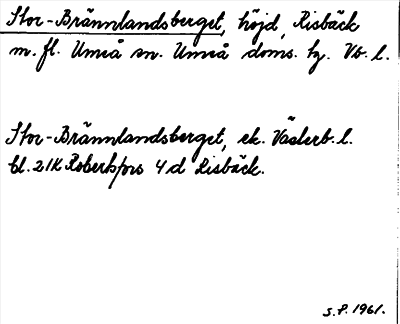 Stor-Brännlandsberget, höjd, Risbäck
m. fl. Umeå sn. Umeå doms. hg. Vb. l.
Stor-Brännlandsberget, ek. Västerb. l.
bl. 21K Robertsfors 4d Risbäck.
S.P. 1961.